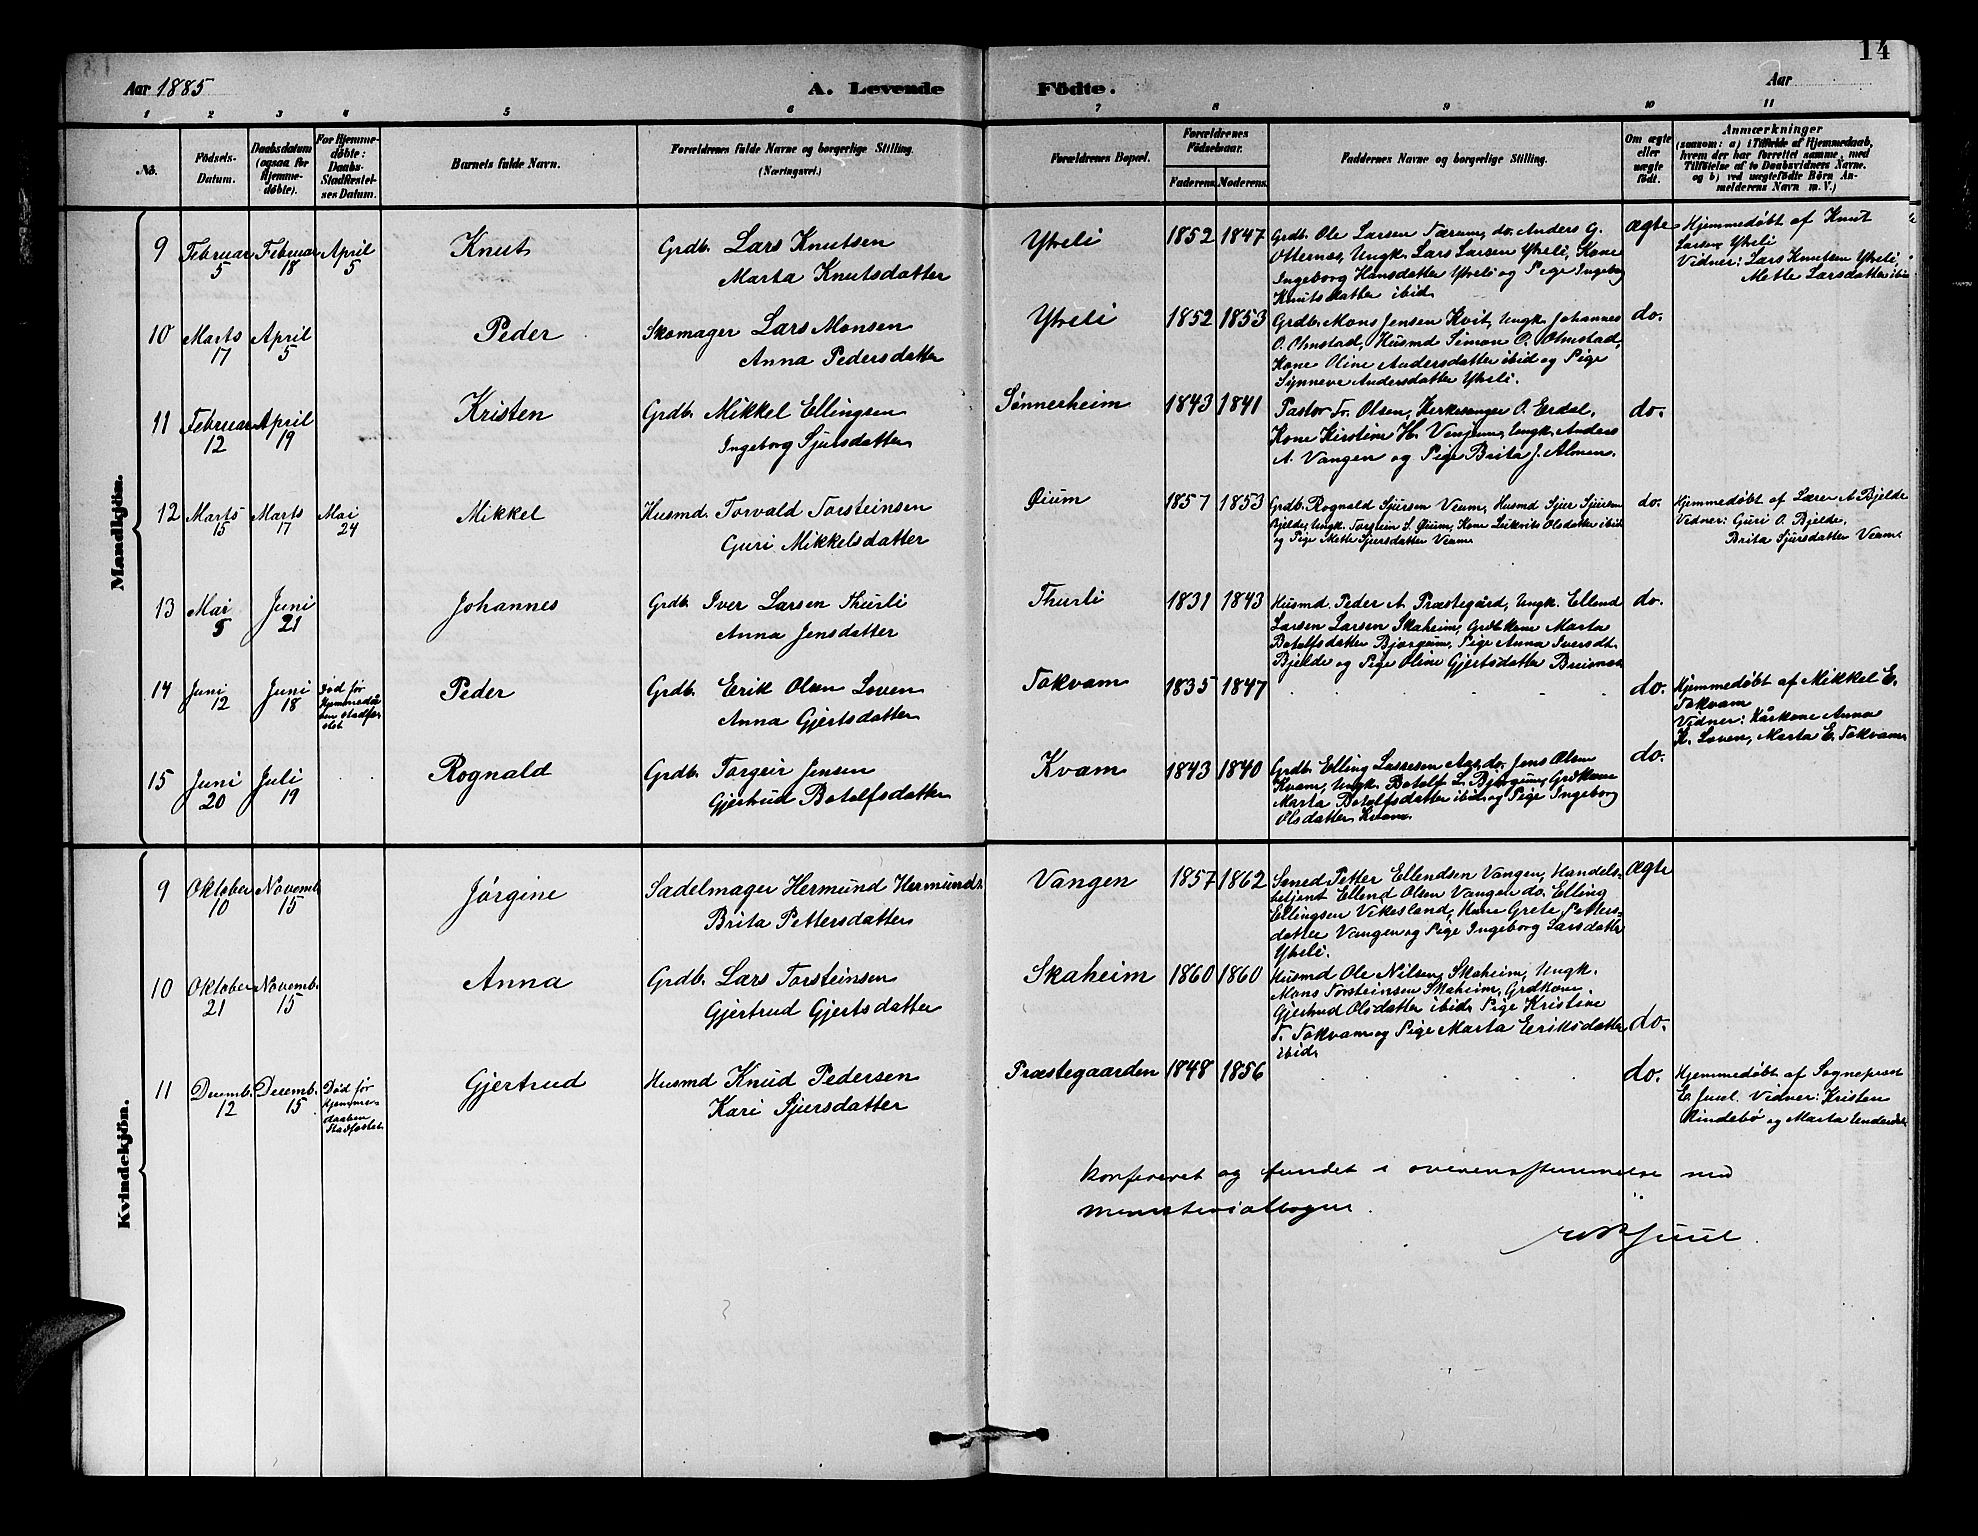 14
Aar 1885
A. Levende Fødte.
Aar
1 2 3 4 5 6 7 8 9 10 11
No.
Fødsels-Datum.
Daabsdatum (ogsaa for Hjemmedøbte).
For Hjemmedøbte: Daabs-Stadfæstelses Datum.
Barnets fulde Navn.
Forældrenes fulde Navne og borgerlige Stilling. (Næringsvei.)
Forældrenes Bopæl.
Forældrenes Fødselsaar.
Faderens. Moderens.
Faddernes Navne og borgerlige Stilling.
Om ægte eller uægte født.
Anmærkninger
(saasom: a) i Tilfælde af Hjemmedaab, hvem der har forrettet samme, med Tilføielse af to Daabsvidners Navne. og b) ved uægtefødte Børn Anmelderens Navn m. V.)
Mandkjön.
9 Februar 5 Februar 18 April 5 Knut Grdb. Lars Knutsen
Marta Knutsdatter
Ytreli 1852 1847
Grdb. Ole Larsen Tærum, do. Anders G.
Otternæs, Ungk. Lars Larsen Ytreli, Kone
Ingeborg Hansdatter Ytreli og Pige Ingeborg
Knutsdatter ibid.
ægte
Hjemmedøbt af Knut
Larsen Ytreli
Vidner: Lars Knutsen Ytreli,
Mette Larsdatter ibid
10 Marts 17 April 5 Peder Skomager Lars Monsen
Anna Pedersdatter
Ytreli 1852 1853
Grdb. Mons Jensen Kvit, Ungk. Johannes
O. Ohnstad, Husmd Simon O. Ohnstad,
Kone Oline Andersdatter ibid og Pige
Synneve Andersdatter Ytreli.
do.
11 Februar 12 April 19 Kristen Grdb. Mikkel Ellingsen
Ingeborg Sjursdatter
Sønnerheim 1843 1841
Pastor Tr. Olsen, Kirkesanger O. Erdal,
Kone Kirstine H. Venjum, Ungk. Anders
A. Vangen og Pige Brita J. Almen.
do.
12 Marts 15 Marts 17 Mai 24 Mikkel Husmd. Torvald Torsteinsen
Guri Mikkelsdatter
Øium 1857 1853
Grdb. Rognald Sjursen Veum, Husmd Sjur Sjursen
Bjelde, Ungk. Torstein S. Øium, Kone Olsdatter ibid
og Pige Mette Sjursdatter Veum
do.
Hjemmedøbt af Lærer A Bjelde
Vidner: Guri O. Bjelde,
Brita Sjursdatter Veum.
13 Mai 5 Juni 21 Johannes Grdb. Iver Larsen Thurli
Anna Jensdatter
Thurli 1831 1843
Husmd. Peder A. Præstegård, Ungk. Ellend
Larsen Larsen Skaheim, Grdkone Marta
Botolfsdatter Bjørgum, Pige Anna Iversdt.
Bjelde og Pige Oline Gjertsdatter
do.
14 Juni 12 Juni 18 Død før
Hjemmedåben
stadfæstet.
Peder Grdb. Erik Olsen Loven
Anna Gjertsdatter
Tokvam 1835 1847
do.
Hjemmedøbt af Mikkel E.
Tokvam
Vidner: Kårkone Anna
K. Loven, Marta E. Tokvam
15 Juni 20 Juli 19 Rognald Grdb. Torgeir Jensen
Gjertrud Botolfsdatter
Kvam 1843 1840
Grdb. Elling Lassesen Aas, do. Jens Olsen
Kvam, Ungk. Botolf L. Bjørgum, Grdkone
Marta Botolfsdatter ibid og Pige Ingeborg
Olsdatter Kvam.
do.
Kvindekjön.
9 Oktober 10 Novemb. 15 Jørgine Sadelmager Hermund Hermunds.
Brita Pettersdatter
Vangen 1857 1862
Smed Petter Ellendsen Vangen, Handels-
betjent Ellend Olsen Vangen do. Elling
Ellingsen Vikesland, Kone Grete Petters-
datter Vangen og Pige Ingeborg Larsdatter
Ytreli.
Ægte
10 Oktober 21 Novemb. 15 Anna Grdb. Lars Torsteinsen
Gjertrud Gjertsdatter
Skaheim 1860 1860
Husmd Ole Nilsen Skaheim, Ungk.
Mons Torsteinsen Skaheim, Grdkone
Gjertrud Olsdatter ibid, Pige Kristine
T. Tokvam og Pige Marta Eriksdatter
ibid.
do.
11 Decemb. 12 Decemb. 15 Død før
Hjemme-
daaben
Stadfæstet.
Gjertrud Husmd Knud Pedersen
Kari Sjursdatter
Præstegaarden 1848 1856
do.
Hjemmedøbt af Sogneprest
E. Juul. Vidner: Kristen
Rindebø og Marta Underdal
Konfereret og fundet i overensstemmelse med
ministerialbogen.
Juul.